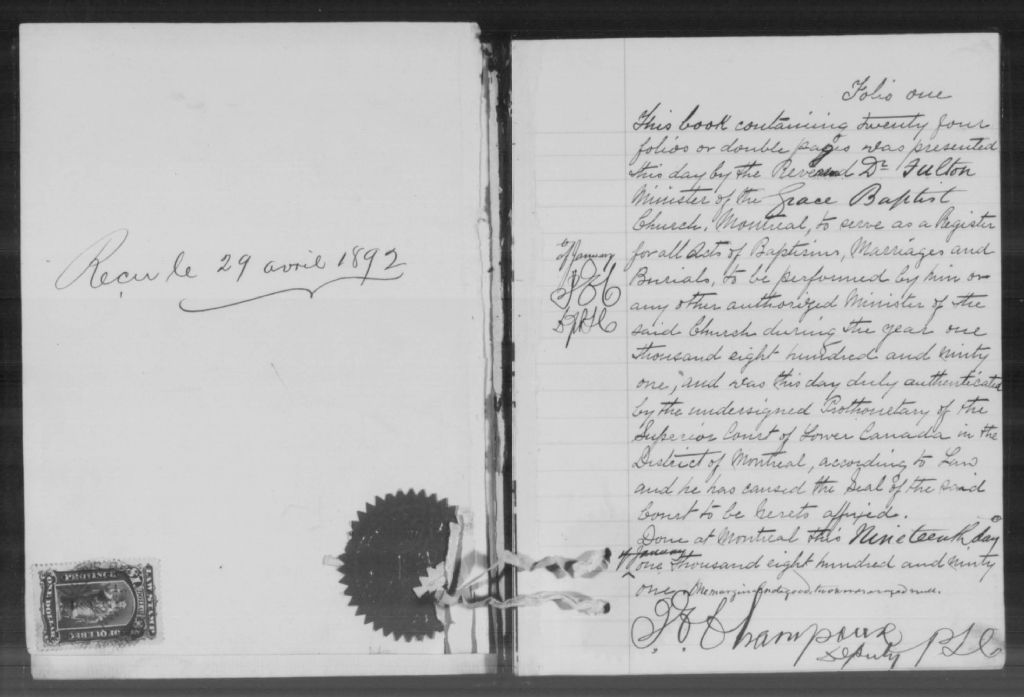 Reçu le 29 avril 1892
PROVINCE
OF QUEBEC
ONE DOLLAR
Folio one
This book containing twenty four
folios or double pages was presented
this day by the Reverend Dr Fulton
Minister of the Grace Baptist
Church, Montreal, to serve as a Register
for all Acts of Baptisms, Marriages and
Burials, to be performed by him or
any other authorized Minister of the
said Church during the year one
thousand eight hundred and ninty
one, and was this day duly authenticated
by the undersigned Prothonotary of the
Superior Court of Lower Canada in the
District of Montreal, according to Law
and he has caused the seal of the said
Court to be hereto affixed.
Done at Montreal this Nineteenth day
of January
one thousand eight hundred and ninty
one. The margin good, two words null.
of January
Dy PSC
Champoux
Deputy PSC